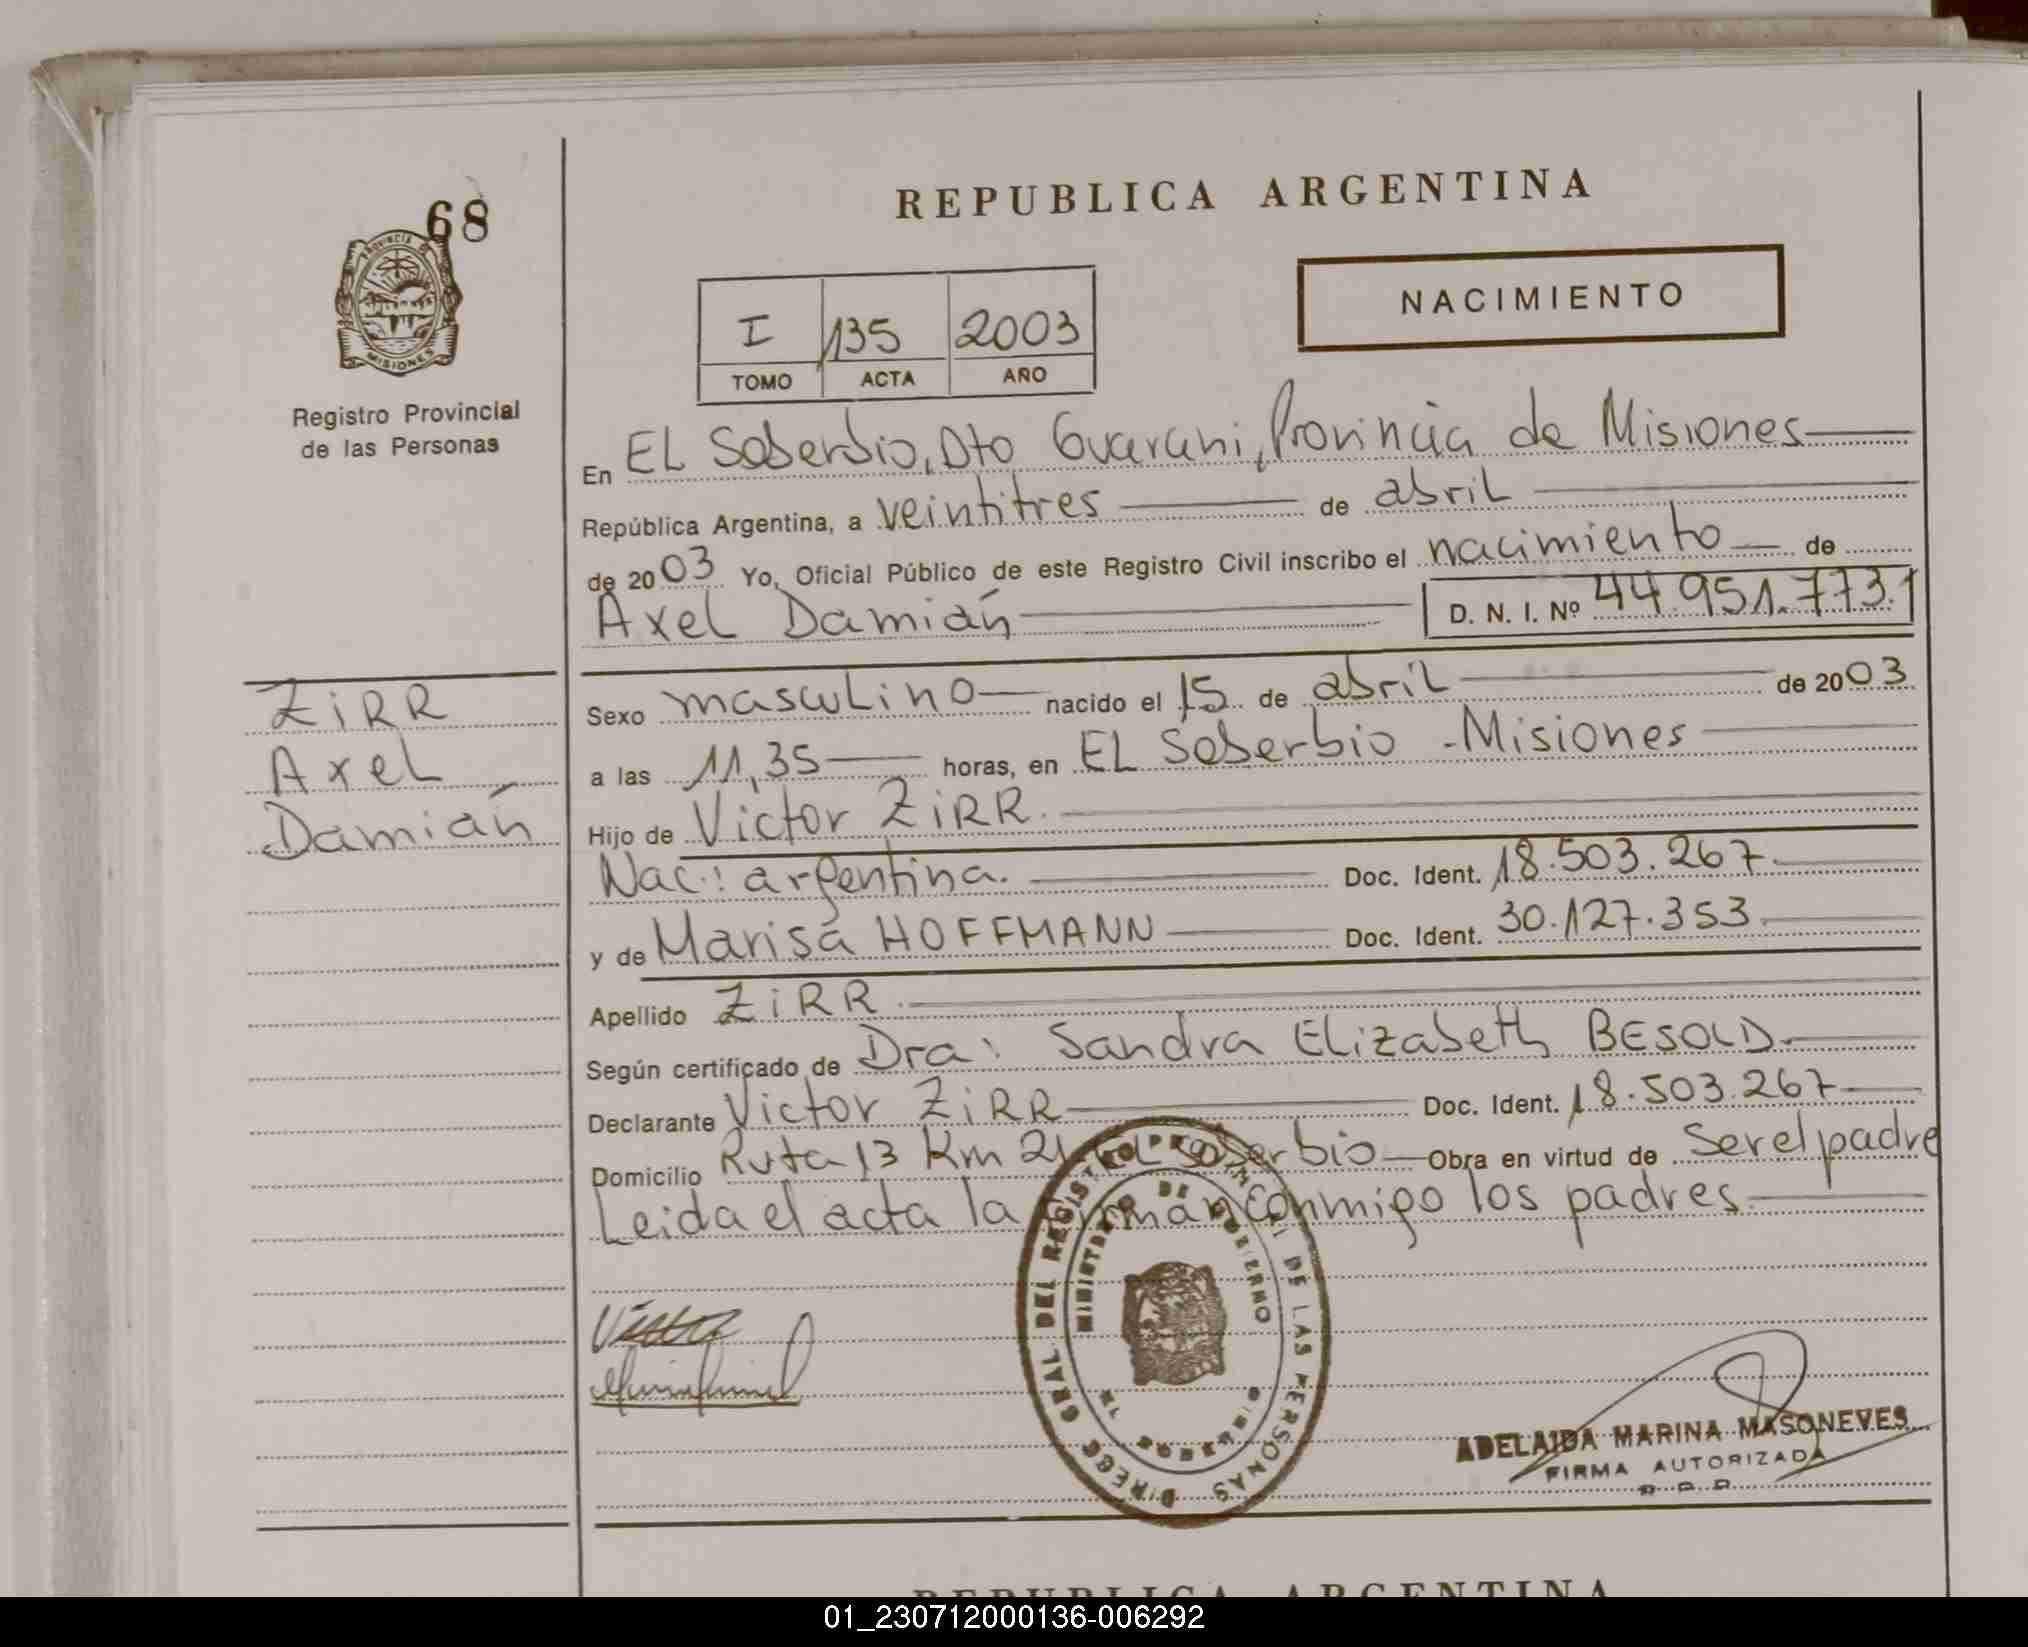 68
PROVINCIA DE
MISIONES
Registro Provincial
de las Personas
REPUBLICA ARGENTINA
NACIMIENTO
I 135 2003
TOMO ACTA AÑO
En EL Soberbio, Dto Guarani, Provincia de Misiones
República Argentina, a veintitres de abril
de 2003 Yo, Oficial Público de este Registro Civil inscribo el nacimiento de
Axel Damián D. N. I. Nº 44.951.773.
ZiRR
Axel
Damián
Sexo masculino nacido el 15 de abril de 2003
a las 11,35 horas, en EL Soberbio - Misiones
Hijo de Victor ZiRR.
Nac.: argentina. Doc. Ident. 18.503.267.
y de Marisa HOFFMANN Doc. Ident. 30.127.353
Apellido ZiRR
Según certificado de Dra: Sandra Elizabeth BESOLD
Declarante Victor ZiRR Doc. Ident. 18.503.267
Domicilio Ruta 13 Km 21 EL Soberbio Obra en virtud de Ser el padre
Leida el acta la firman conmigo los padres.
DIRECC GRAL DEL REGISTRO PROVINCIAL DE LAS PERSONAS
MINISTERIO DE GOBIERNO
MISIONES
Victor
ADELAIDA MARINA MASONEVES
FIRMA AUTORIZADA
R. P. P.
REPUBLICA ARGENTINA
01_230712000136-006292